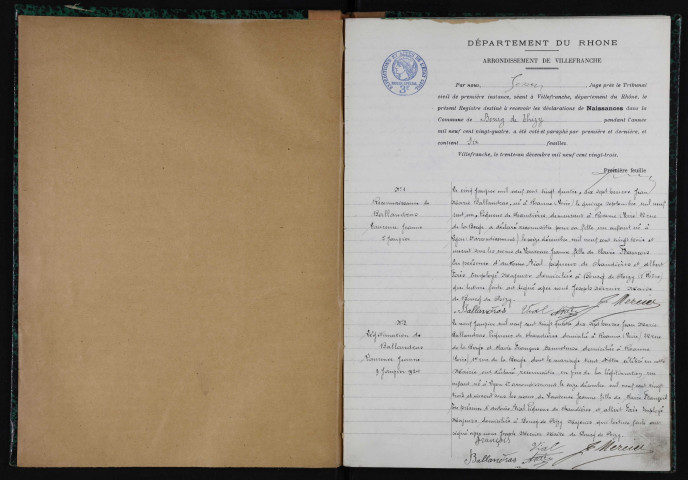 DÉPARTEMENT DU RHONE
ARRONDISSEMENT DE VILLEFRANCHE
Par nous, Juge près le Tribunal
civil de première instance, séant à Villefranche, département du Rhône, le
présent Registre destiné à recevoir les déclarations de Naissances dans la
Commune de Bourg de Thizy pendant l'année
mil neuf cent vingt-quatre, a été coté et paraphé par première et dernière, et
contient dix feuilles.
Villefranche, le trente-un décembre mil neuf cent vingt-trois.
Première feuille
N°1
Reconnaissance de
Ballandras
Laurence Jeanne
5 Janvier
Le cinq Janvier mil neuf cent vingt quatre, dix sept heures Jean
Marie Ballandras, né à Roanne Loire, le quinze septembre mil neuf
cent un, Piqueur de chaudières, demeurant à Roanne Loire, rue
de la Berge, a déclaré reconnaître pour sa fille un enfant né à
Lyon arrondissement, le seize décembre mil neuf cent vingt trois et
inscrit sous les noms de Laurence Jeanne fille de Marie François
En présence d'Antoine Vial piqueur de chaudières et Albert
employé Majeurs domiciliés à Bourg de Thizy (Rhône)
qui lecture faite ont signé avec nous Joseph Mercier Maire
de Bourg de Thizy.
Ballandras Vial J. Mercier
N°2
Légitimation de
Ballandras
Laurence Jeanne
9 Janvier 1924
Le neuf Janvier mil neuf cent vingt quatre dix sept heures Jean Marie
Ballandras, Piqueur de chaudières domicilié à Roanne (Loire) rue
de la Berge et Marie François domiciliée à Roanne
Loire rue de la Berge dont le mariage a été célébré en cette
Mairie ont déclaré reconnaître, en vue de la légitimation, un
enfant né à Lyon arrondissement le seize décembre mil neuf cent vingt
trois et inscrit sous les noms de Laurence Jeanne fille de Marie François
En présence d'Antoine Vial Piqueur de chaudières et Albert employé
Majeurs domiciliés à Bourg de Thizy Majeurs qui lecture faite ont
signé avec nous Joseph Mercier Maire de Bourg de Thizy.
François Vial J. Mercier
Ballandras